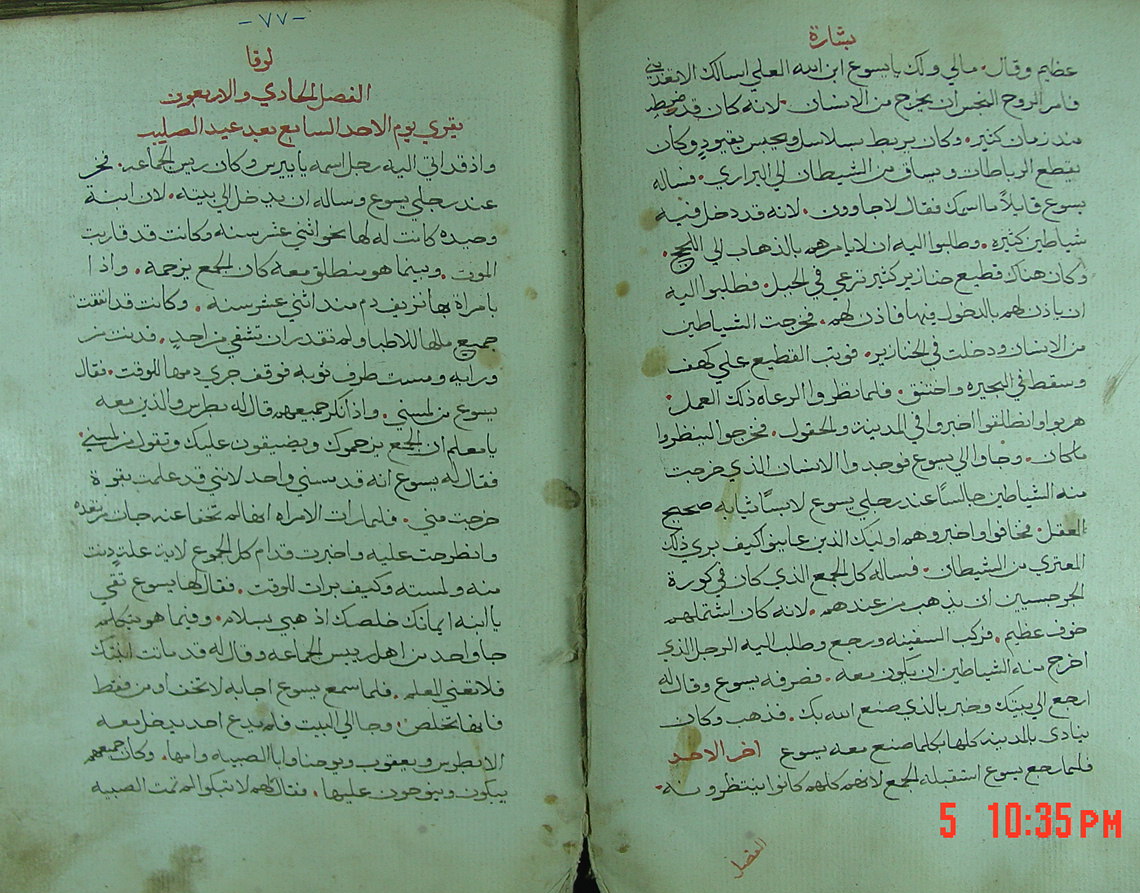 بشارة
عظيم وقال. مالي ولك يا يسوع ابن الله العلي اسالك الا تعذبني
فامر الروح النجس ان يخرج من الانسان. لانه كان قد ضبط
منذ زمان كثير. وكان يربط بسلاسل ويحبس بقيودٍ وكان
يقطع الرباطات ويساق من الشيطان الي البراري. فساله
يسوع قايلاً ما اسمك فقال لاجاوون. لانه قد دخل فيه
شياطين كثيره. وطلبوا اليه ان لا يامرهم بالذهاب الي اللجج.
وكان هناك قطيع خنازير كثير ترعي في الجبل. فطلبوا اليه
ان ياذن لهم بالدخول فيها فاذن لهم. فخرجت الشياطين
من الانسان ودخلت في الخنازير. فوثب القطيع علي كهف
وسقط في البحيره واختنق. فلما نظروا الرعاه ذلك العمل.
هربوا وانطلقوا اخبروا في المدينه والحقول. فخرجوا لينظروا
ما كان. وجاوا الي يسوع فوجدوا الانسان الذي خرجت
منه الشياطين جالسًا عند رجلي يسوع لابسًا ثيابه صحيح
العقل. فخافوا واخبروهم اوليك الذين عاينوا كيف بري ذلك
المعتري من الشيطان. فساله كل الجمع الذي كان في كورة
الجرجسيين ان يذهب من عندهم. لانه كان اشتملهم
خوف عظيم. فركب السفينه ورجع وطلب اليه الرجل الذي
اخرج منه الشياطين ان يكون معه. فصرفه يسوع وقال له
ارجع الي بيتك وخبر بالذي صنع الله بك. فذهب وكان
ينادي بالمدينه كلها بكلما صنع معه يسوع اخر الاحد
فلما رجع يسوع استقبله الجمع لانهم كلهم كانوا ينتظرونه.
الفصل
-٧٧-
لوقا
الفصل الحادي والاربعون
يقري يوم الاحد السابع بعد عيد الصليب
واذ قد اتي اليه رجل اسمه ياييرس وكان ريس الجماعه. فخر
عند رجلي يسوع وساله ان يدخل الي بيته. لان ابنة
وحيده كانت له لها نحو اثني عشر سنه وكانت قد قاربت
الموت. وبينما هو منطلق معه كان الجمع يزحمه. واذا
بامراة بها نزيف دم منذ اثني عشر سنه. وكانت قد انفقت
جميع مالها للاطبا ولم تقدر ان تشفي من احدٍ. فدنت من
ورايه ومست طرف ثوبه فوقف جري دمها للوقت. فقال
يسوع من لمسني. واذ انكر جميعهم قال له بطرس والذين معه
يا معلم ان الجمع يزحموك ويضيقون عليك وتقول من لمسني.
فقال له يسوع انه قد مسني واحد لانني قد علمت بقوة
خرجت مني. فلما رات الامراه انها لم تخفا عنه جات مرتعده
وانطرحت عليه واخبرت قدام كل الجموع لاية علةٍ دنت
منه ولمسته وكيف برات للوقت. فقال لها يسوع ثقي
يا ابنه ايمانك خلصك اذهبي بسلام. وفيما هو يتكلم
جا واحد من اهل رييس الجماعه وقال له قد ماتت ابنتك
فلا تعني المعلم. فلما سمع يسوع اجابه لا تخف اومن فقط
فانها تخلص. وجا الي البيت فلم يدع احد يدخل معه
الا بطرس ويعقوب ويوحنا وابا الصبيه وامها. وكان جميعهم
يبكون وينوحون عليها. فقال لهم لا تبكوا لم تمت الصبيه
5 10:35 PM